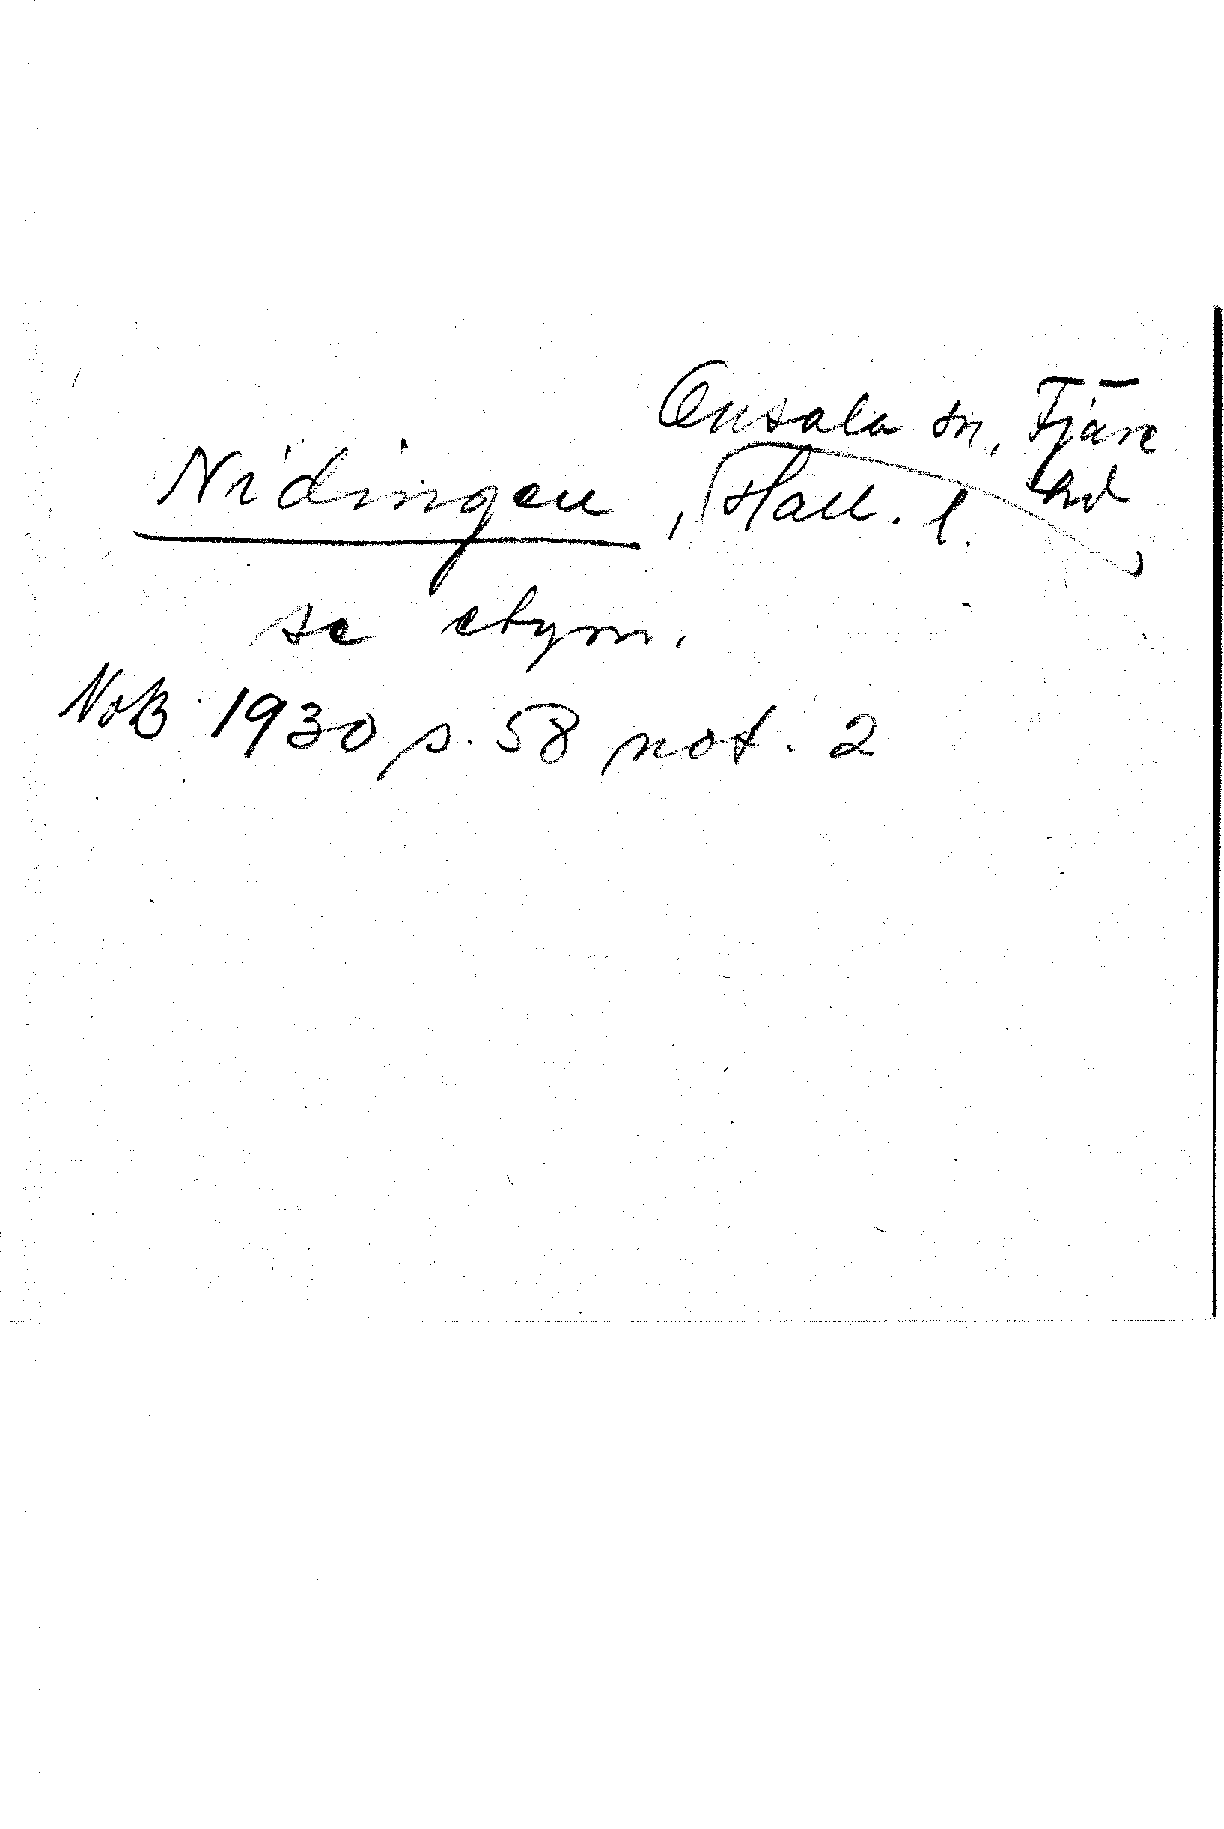 Onsala sn, Fjäre
hd
Nidingen, Hall. l.
se etym.
NoB 1930 p. 58 not. 2